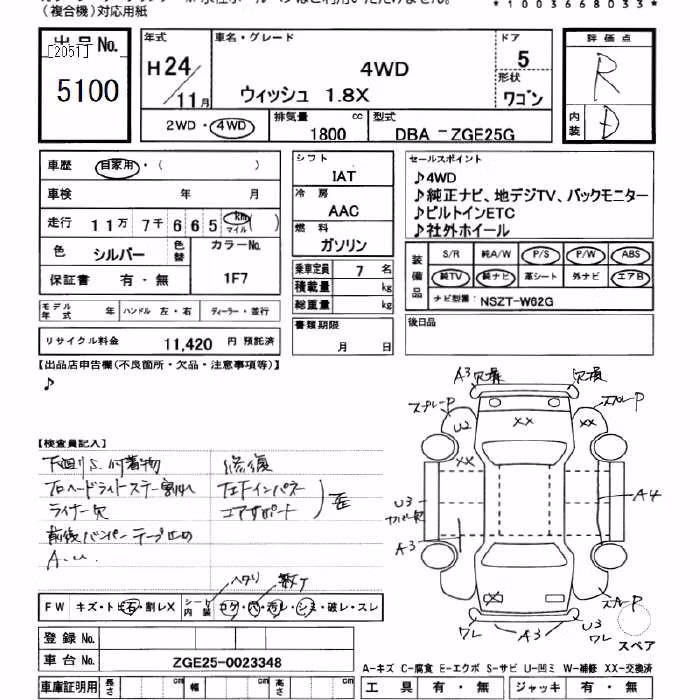 （複合機）対応用紙
*1003668033*
出品No.
[2051]
5100
年式
H24/11月
車名・グレード
4WD
ウィッシュ 1.8X
ドア
5
形状
ワゴン
評価点
R
内装
D
2WD・4WD
排気量
1800 cc
型式
DBA-ZGE25G
車歴 自家用・( )
車検 年 月
走行 11万7千665 km マイル ( )
色 シルバー
色替
カラーNo.
1F7
保証書 有・無
モデル年式 年 ハンドル 左・右 ディーラー・並行
リサイクル料金 11,420 円 預託済
シフト
IAT
冷房
AAC
燃料
ガソリン
乗車定員 7 名
積載量 kg
総重量 kg
書類期限
月 日
セールスポイント
♪4WD
♪純正ナビ、地デジTV、バックモニター
♪ビルトインETC
♪社外ホイール
装備品
S/R 純A/W P/S P/W ABS
純TV 純ナビ 革シート 外ナビ エアB
ナビ型番: NSZT-W62G
後日品
【出品店申告欄(不良箇所・欠品・注意事項等)】
♪
【検査員記入】
下廻りS.付着物
フロヘッドライトステー割れ
ライナー欠
前後バンパーテープ止め
A.U.
修復
左Fインパネ
コアサポート
歪
A3 欠損
欠損
スプレーP
スプレーP
U2
XX
XX
XX
U3
カバー欠
A3
A4
スプレーP
XX
ワレ
A3
U3
ワレ
スペア
ヘタリ
FW キズ・トビ石・割レX
シート内装
コゲ・穴・汚レ・シミ・破レ・スレ
登録No.
車台No. ZGE25-0023348
車庫証明用 長さ cm 幅 cm 高さ cm
A-キズ C-腐食 E-エクボ S-サビ U-凹ミ W-補修 XX-交換済
工具 有・無 ジャッキ 有・無